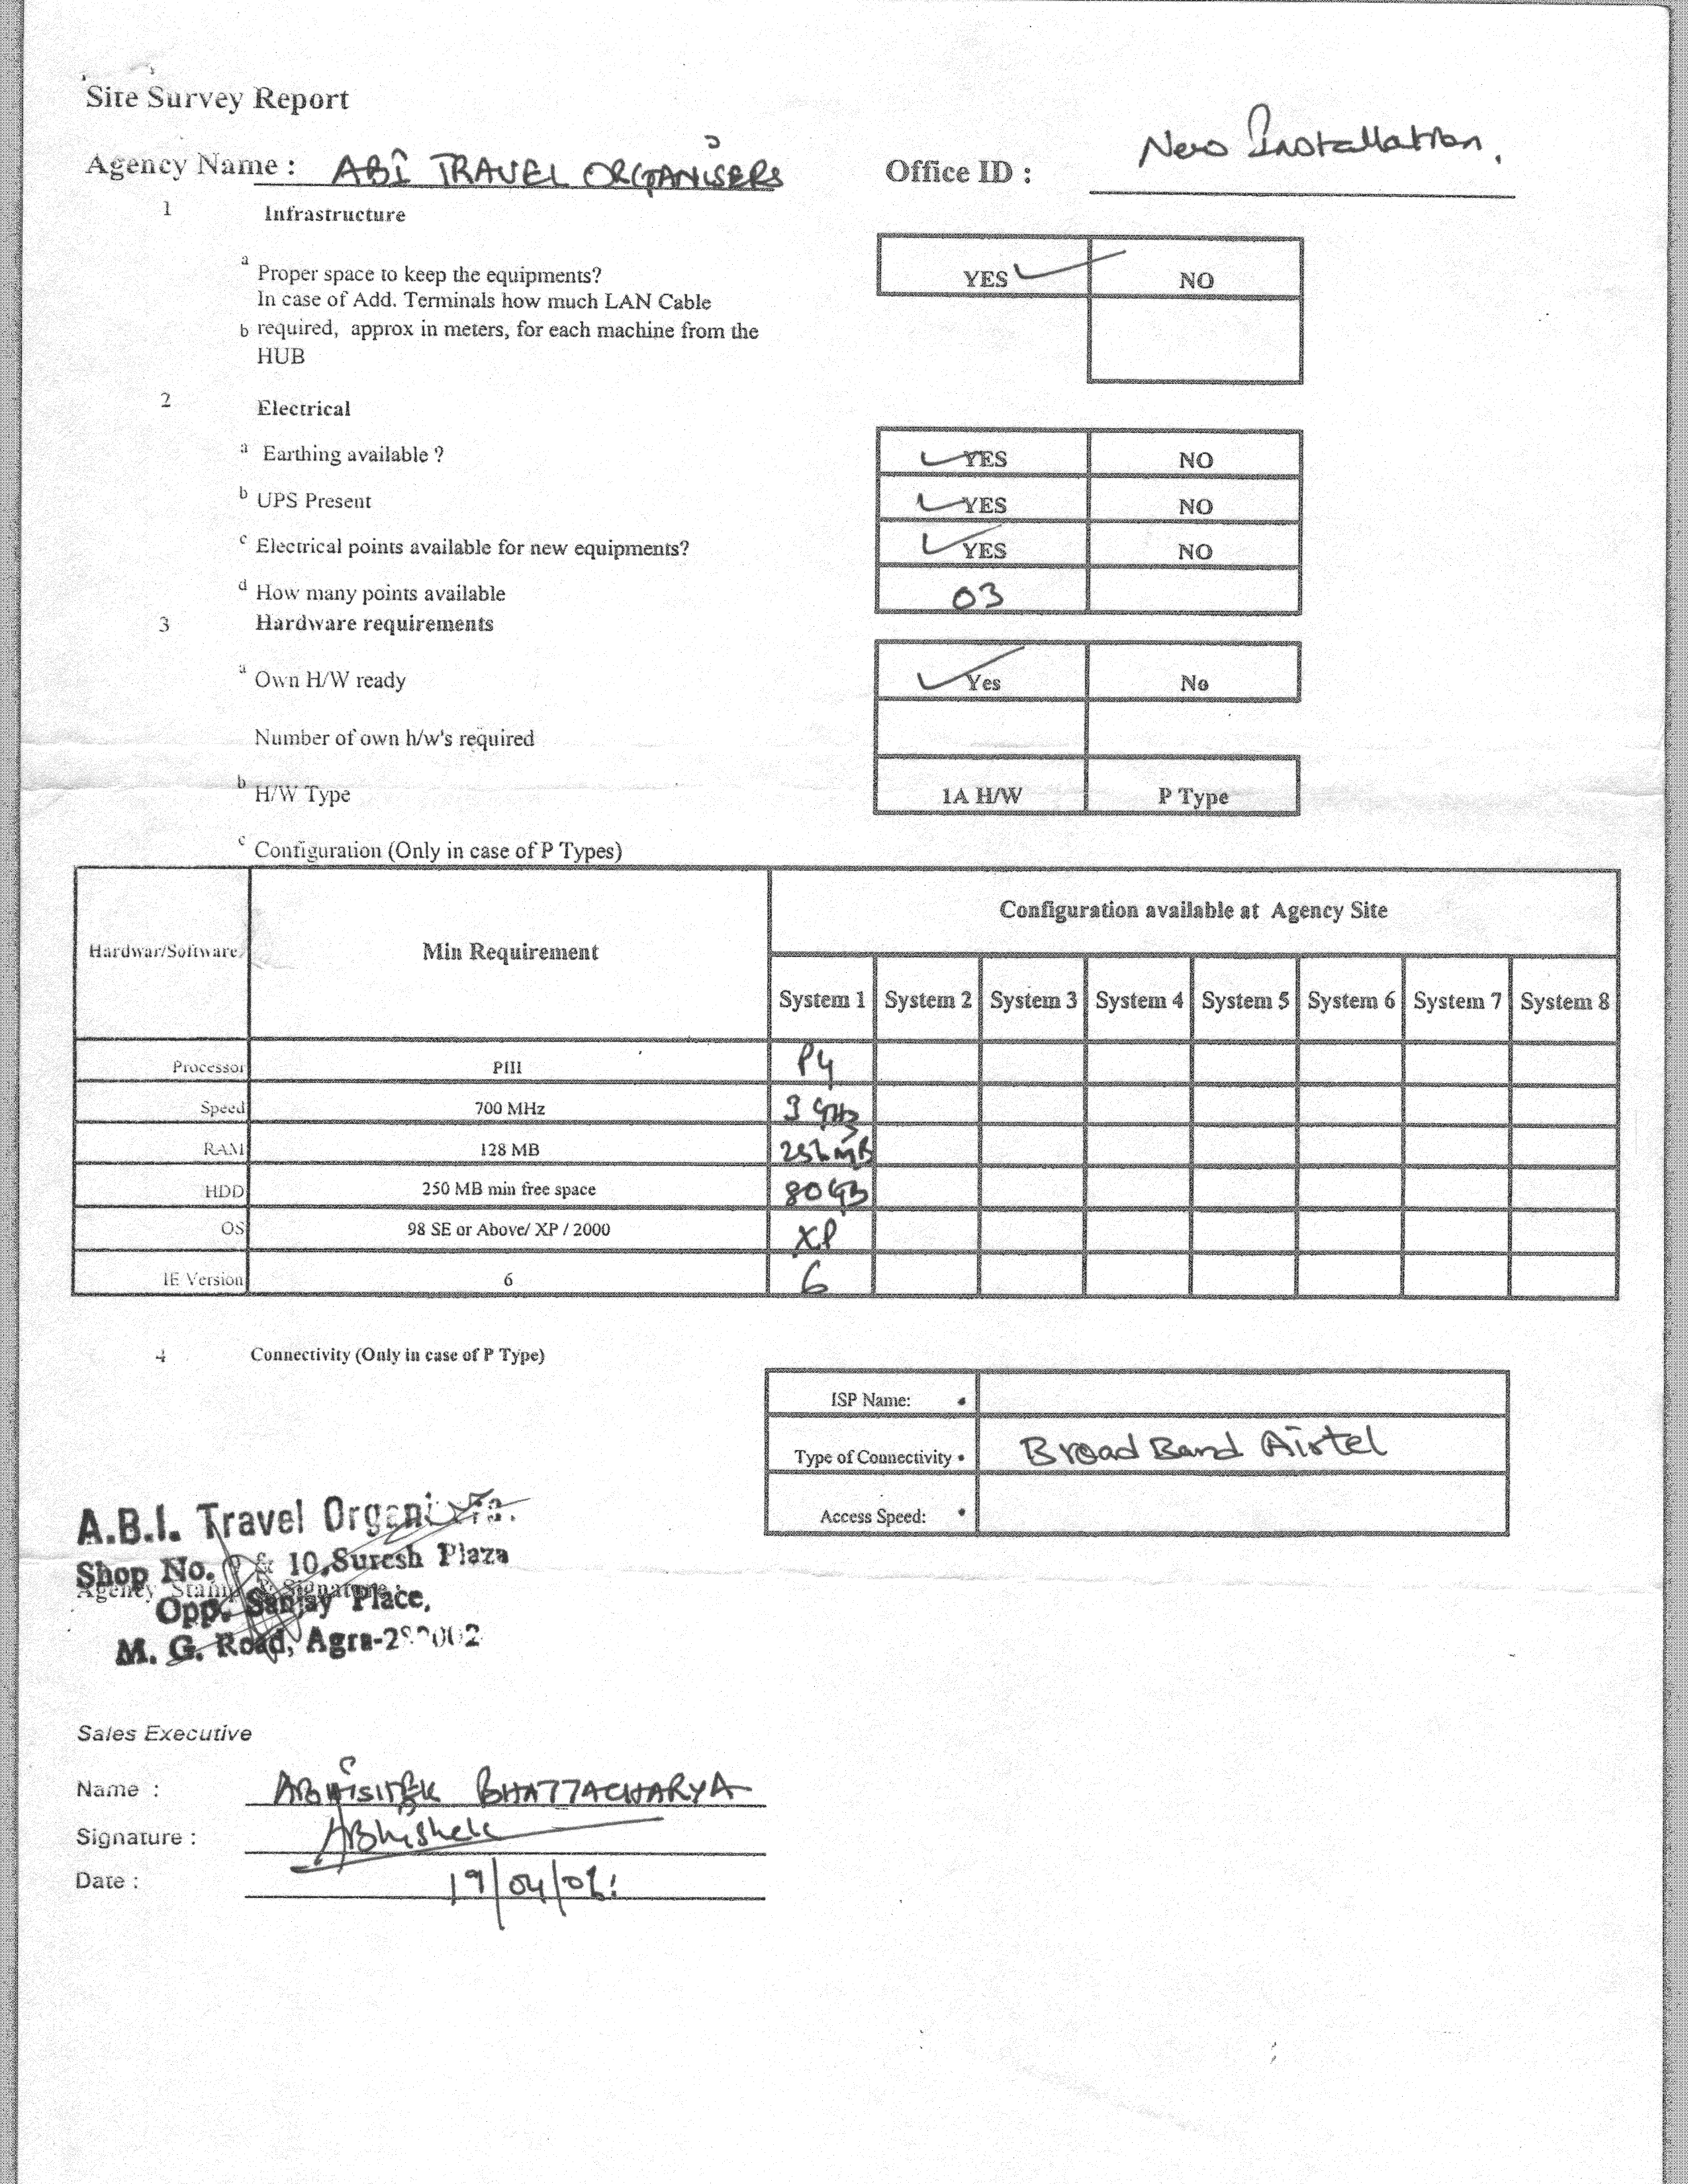 Site Survey Report
Agency Name : ABI TRAVEL ORGANISERS Office ID : New Installation.
1 Infrastructure
a Proper space to keep the equipments? YES NO
In case of Add. Terminals how much LAN Cable
b required, approx in meters, for each machine from the
HUB
2 Electrical
a Earthing available ? YES NO
b UPS Present YES NO
c Electrical points available for new equipments? YES NO
d How many points available 03
3 Hardware requirements
a Own H/W ready Yes No
Number of own h/w's required
b H/W Type 1A H/W P Type
c Configuration (Only in case of P Types)
Hardwar/Software Min Requirement Configuration available at Agency Site
System 1 System 2 System 3 System 4 System 5 System 6 System 7 System 8
Processor PIII P4
Speed 700 MHz 3 GHz
RAM 128 MB 256 MB
HDD 250 MB min free space 80 GB
OS 98 SE or Above/ XP / 2000 XP
IE Version 6 6
4 Connectivity (Only in case of P Type)
ISP Name:
Type of Connectivity Broad Band Airtel
Access Speed:
A.B.I. Travel Organisers.
Shop No. & 10, Suresh Plaza
Agency Stamp & Signature :
Opp. Sanjay Place,
M. G. Road, Agra-
Sales Executive
Name : ABHISHEK BHATTACHARYA
Signature : ABhishek
Date : 19/04/06